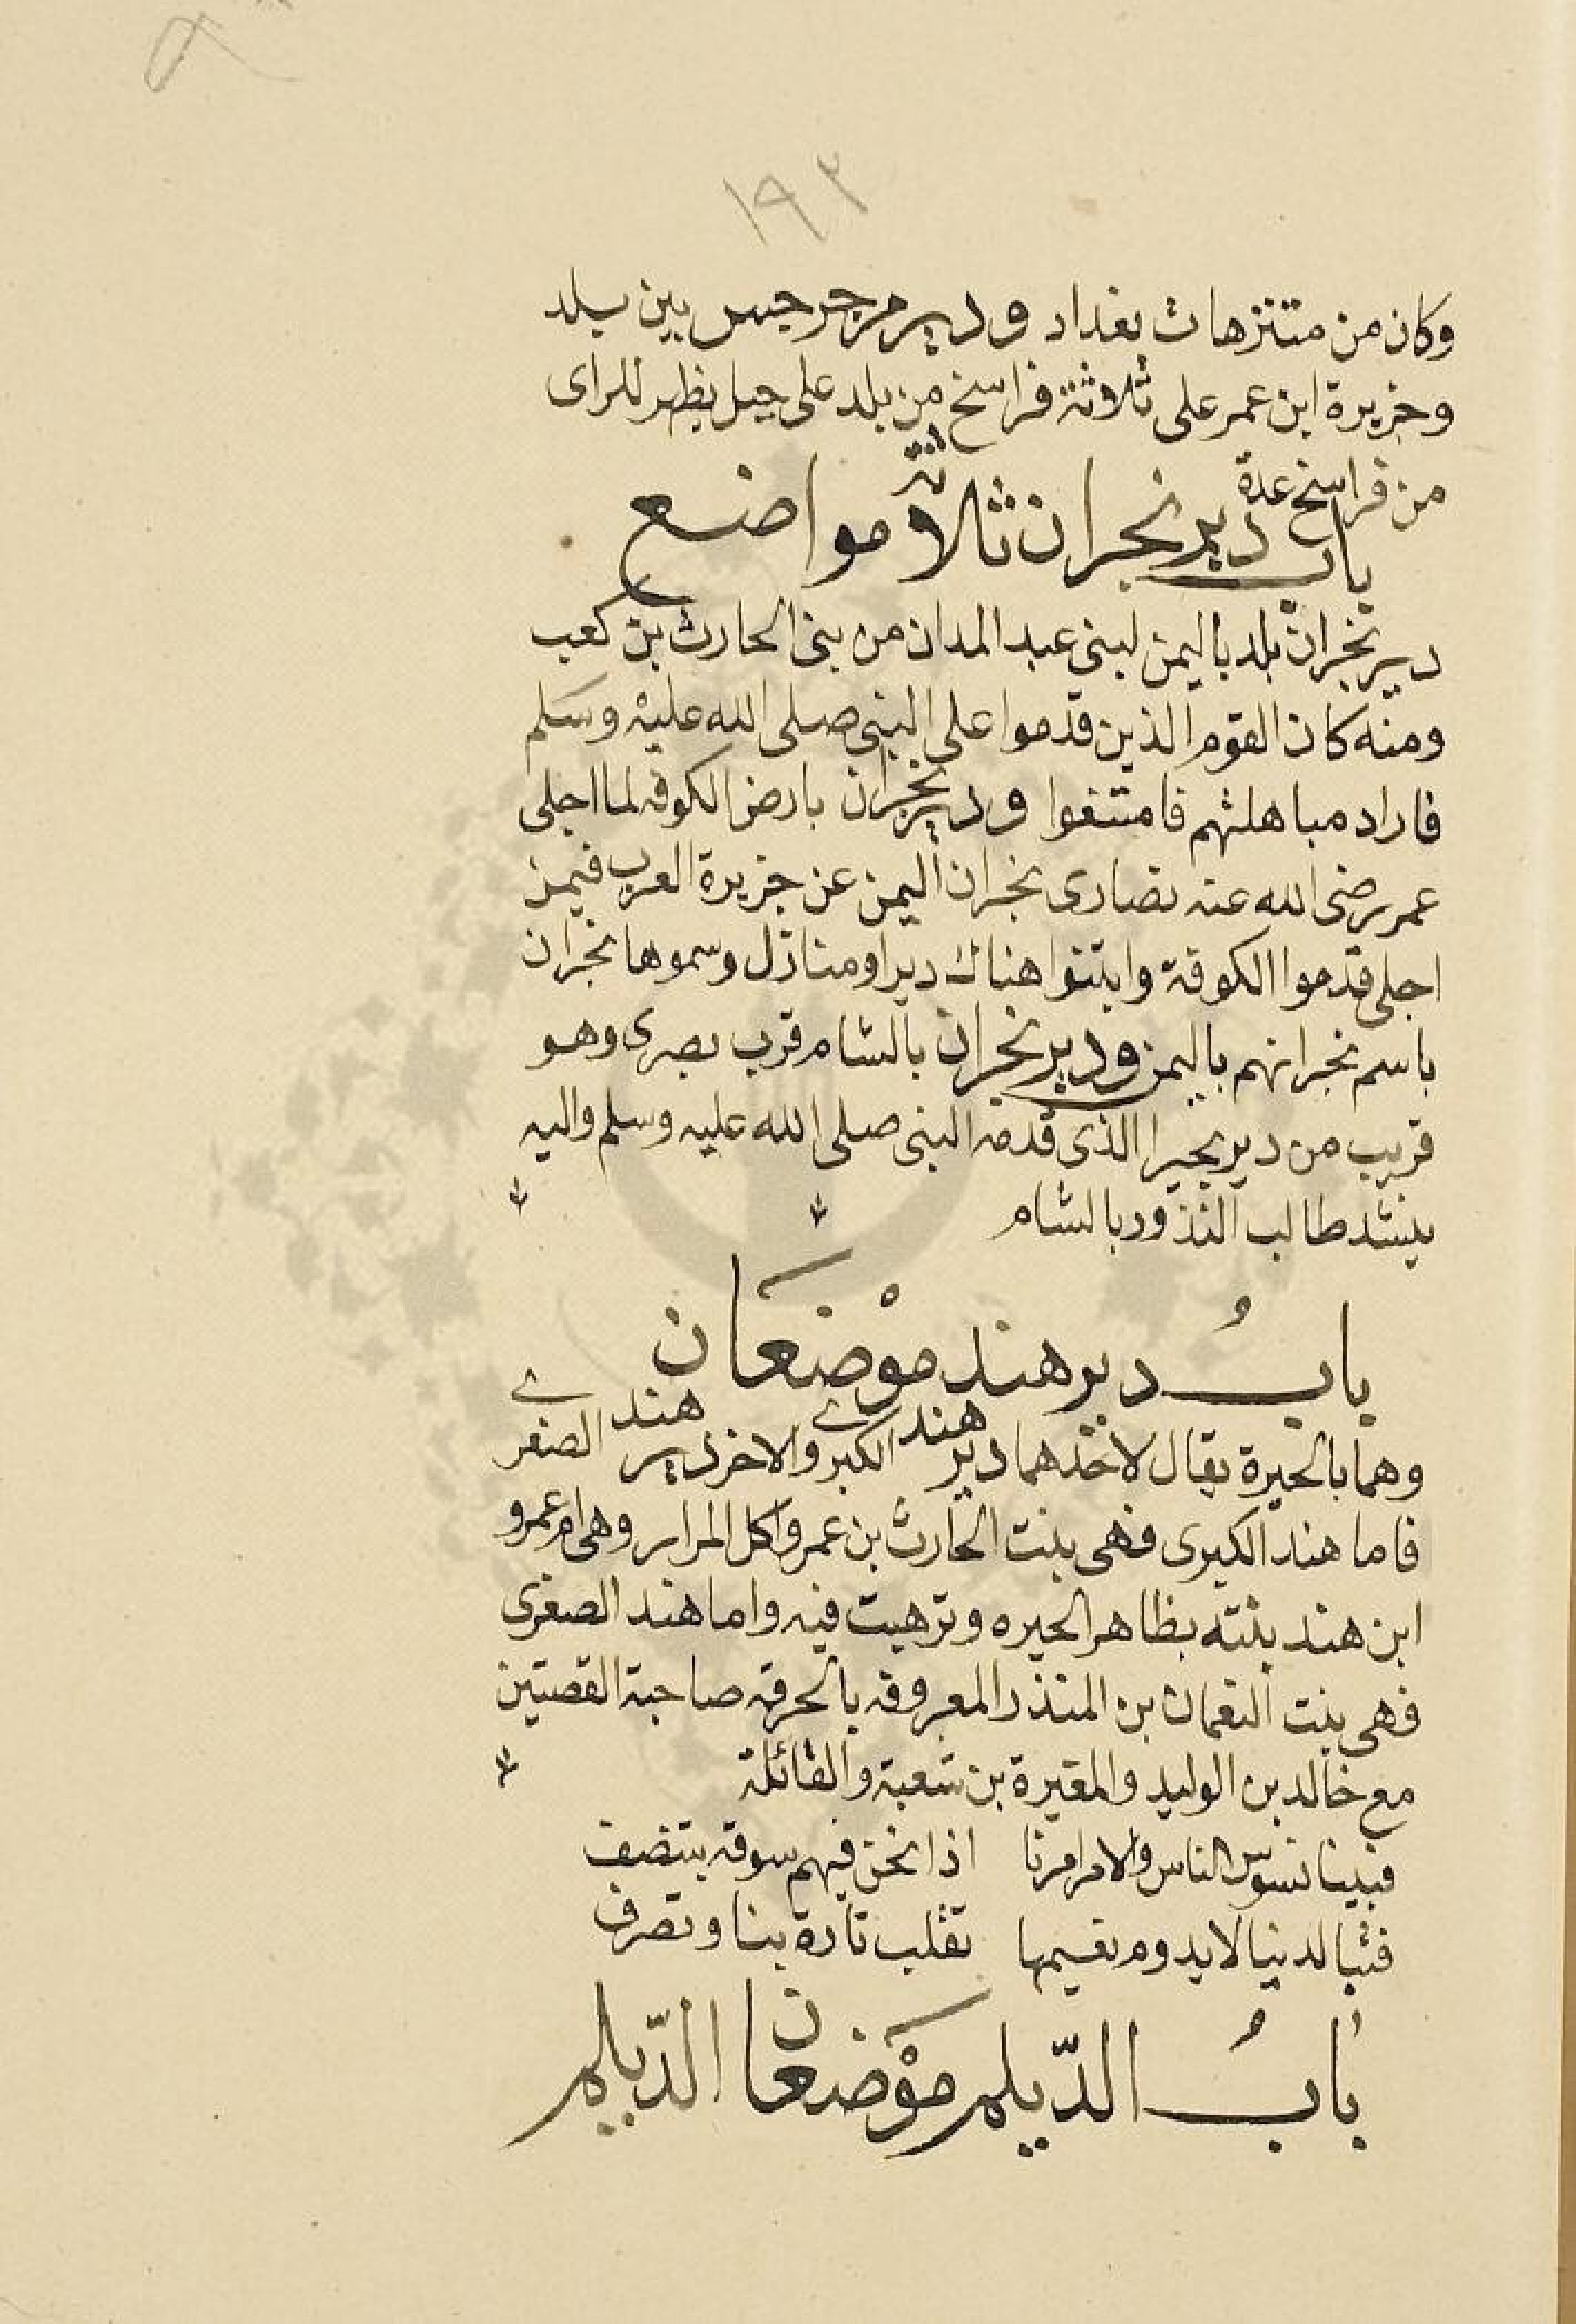 ١٩٢
وكان من متنزهات بغداد ودير مرجرجيس بين بلد
وجزيرة ابن عمر على ثلاثة فراسخ من بلد على جبل يظهر للراى
من فراسخ عدة
باب دير نجران ثلاثة مواضع
دير نجران بلد باليمن لبنى عبد المدان من بنى الحارث بن كعب
ومنه كان القوم الذين قدموا على النبى صلى الله عليه وسلم
فاراد مباهلتهم فامتنعوا ودير نجران بارض الكوفه لما اجلى
عمر رضى الله عنه نصارى نجران اليمن عن جزيرة العرب فيمن
اجلى قدموا الكوفة وابتنوا هناك ديرا ومنازل وسموها نجران
باسم نجرانهم باليمن ودير نجران بالشام قرب بصرى وهو
قريب من دير بحيرا الذى قدمه النبى صلى الله عليه وسلم واليه
ينشد طالب النذور بالشام
بابُ دير هند موْضعَان
وهما بالحيرة يقال لاحدهما دير هند الكبرے والاخر دير هند الصغرے
فاما هند الكبرى فهى بنت الحارث بن عمرو اكل المرار وهى ام عمرو
ابن هند بنته بظاهر الحيره وترهبت فيه واما هند الصغرى
فهى بنت النعمان بن المنذر المعروفه بالحرقه صاحبة القصتين
مع خالد بن الوليد والمغيرة بن شعبة والقائلة
فبينا نسوس الناس والامر امرنا اذا نحن فيهم سوقه نتنصف
فتبا لدنيا لا يدوم نعيمها تقلب تارة بنا وتصرف
بابُ الدّيلم موْضعَان الدّيلم